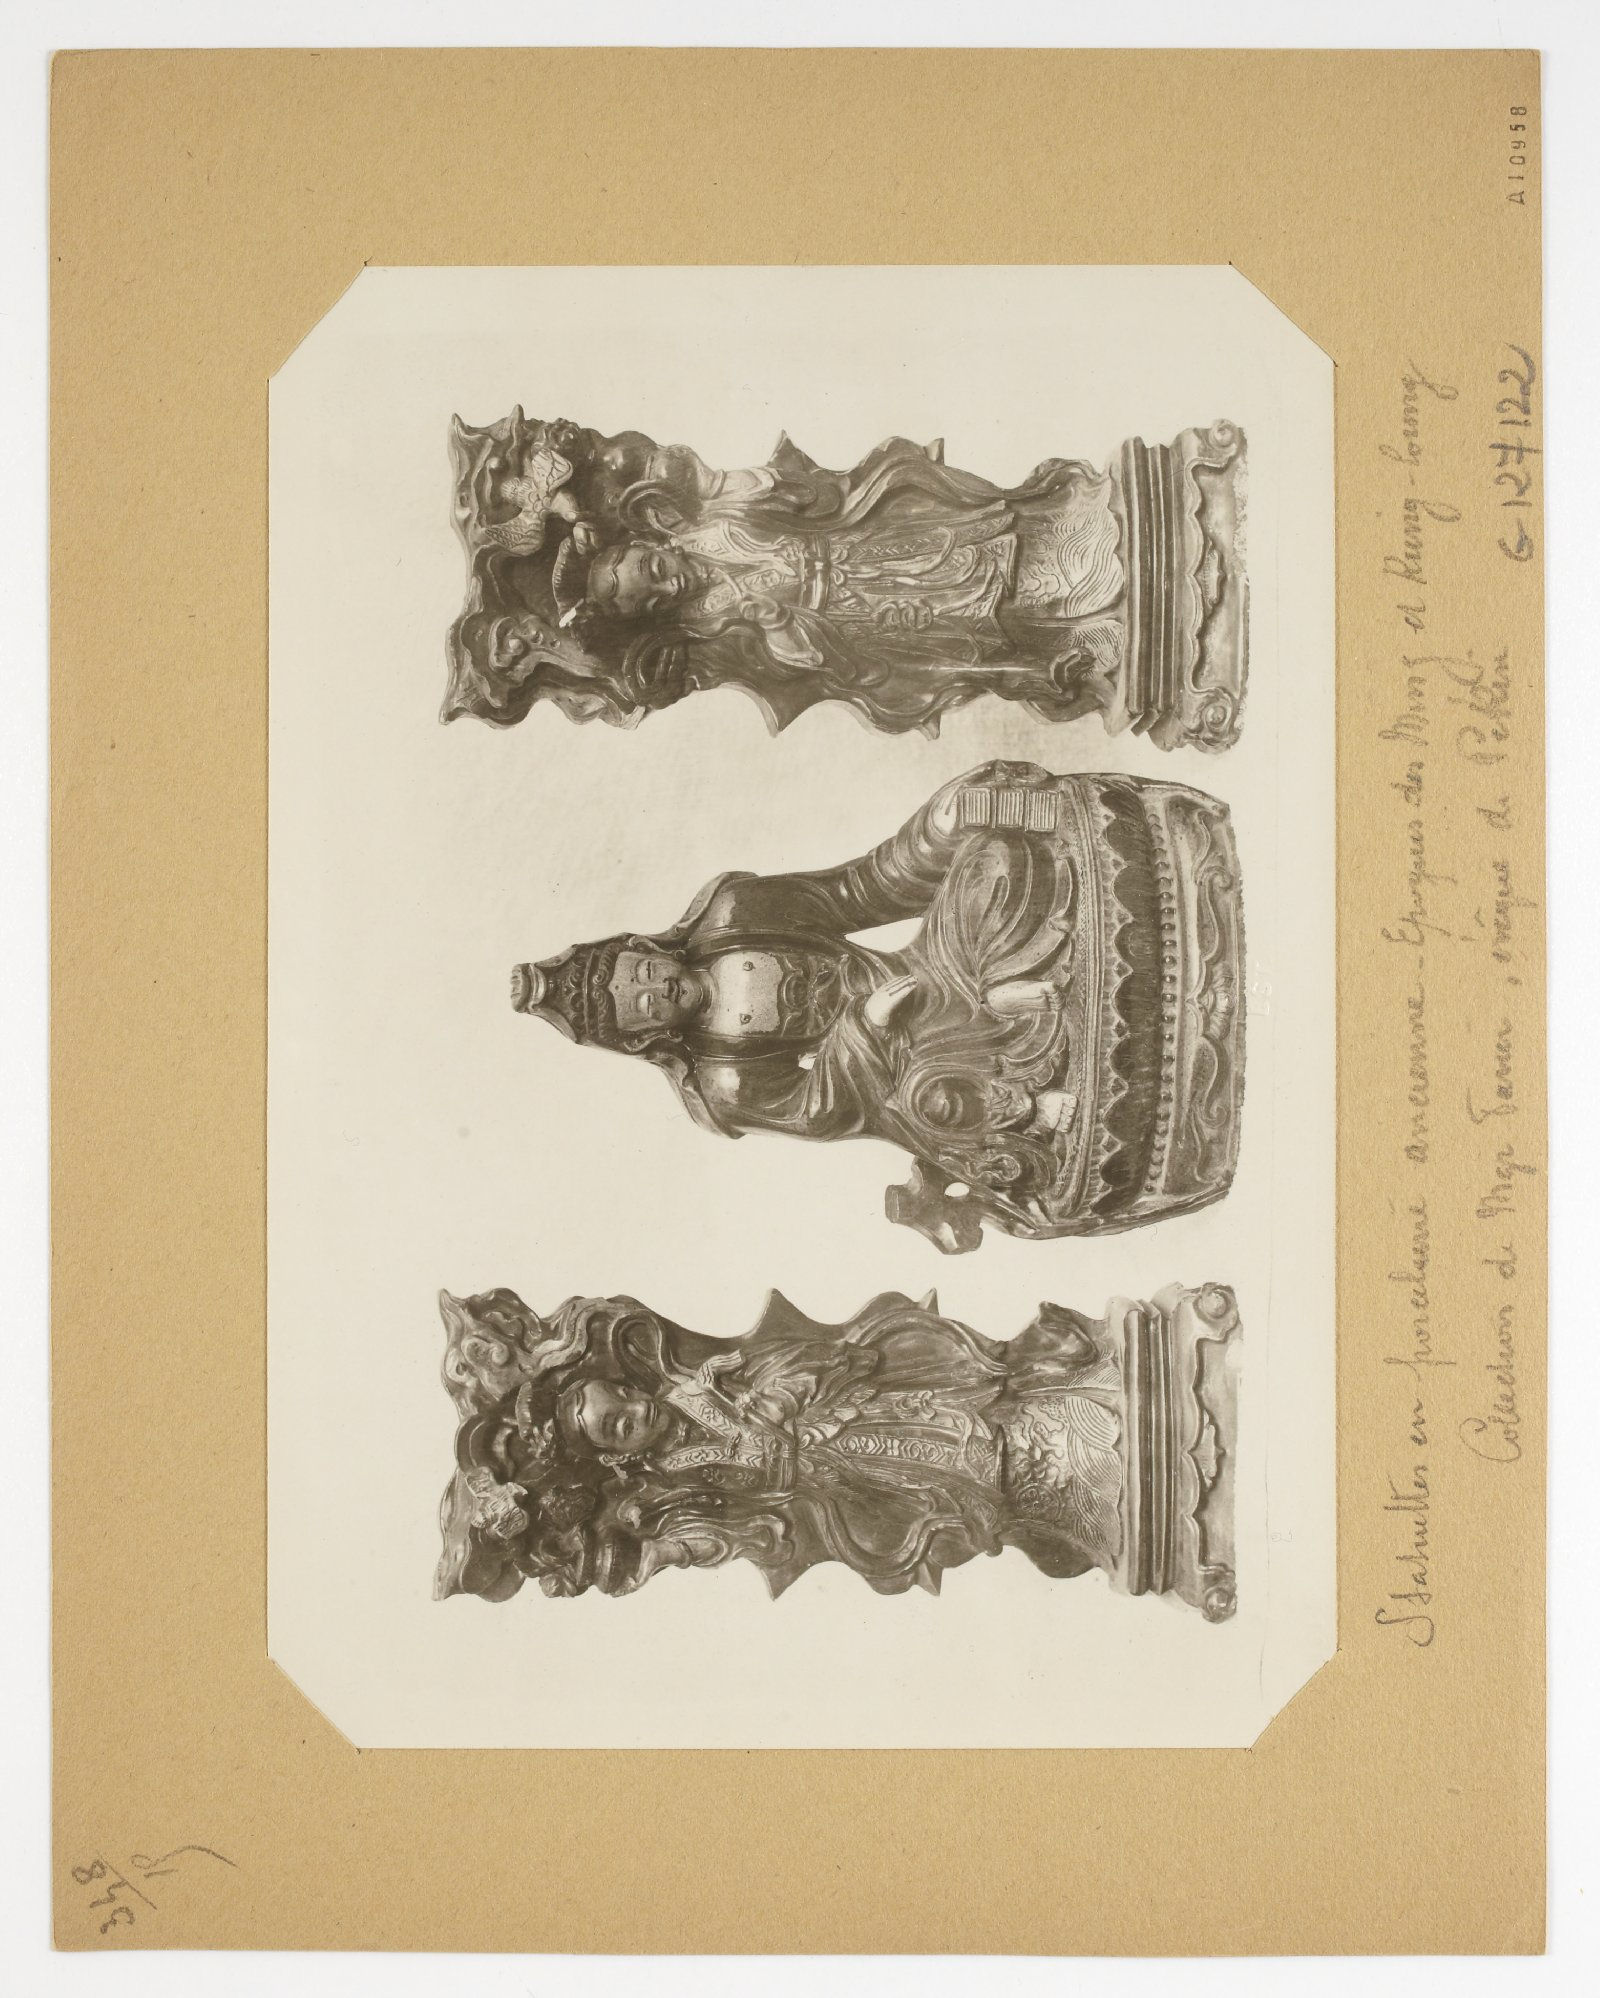 Statuettes en porcelaine ancienne - Epoques des Ming et King-Loung
Collection de Mgr Favier, évêque de Pékin
G 127122
A10958